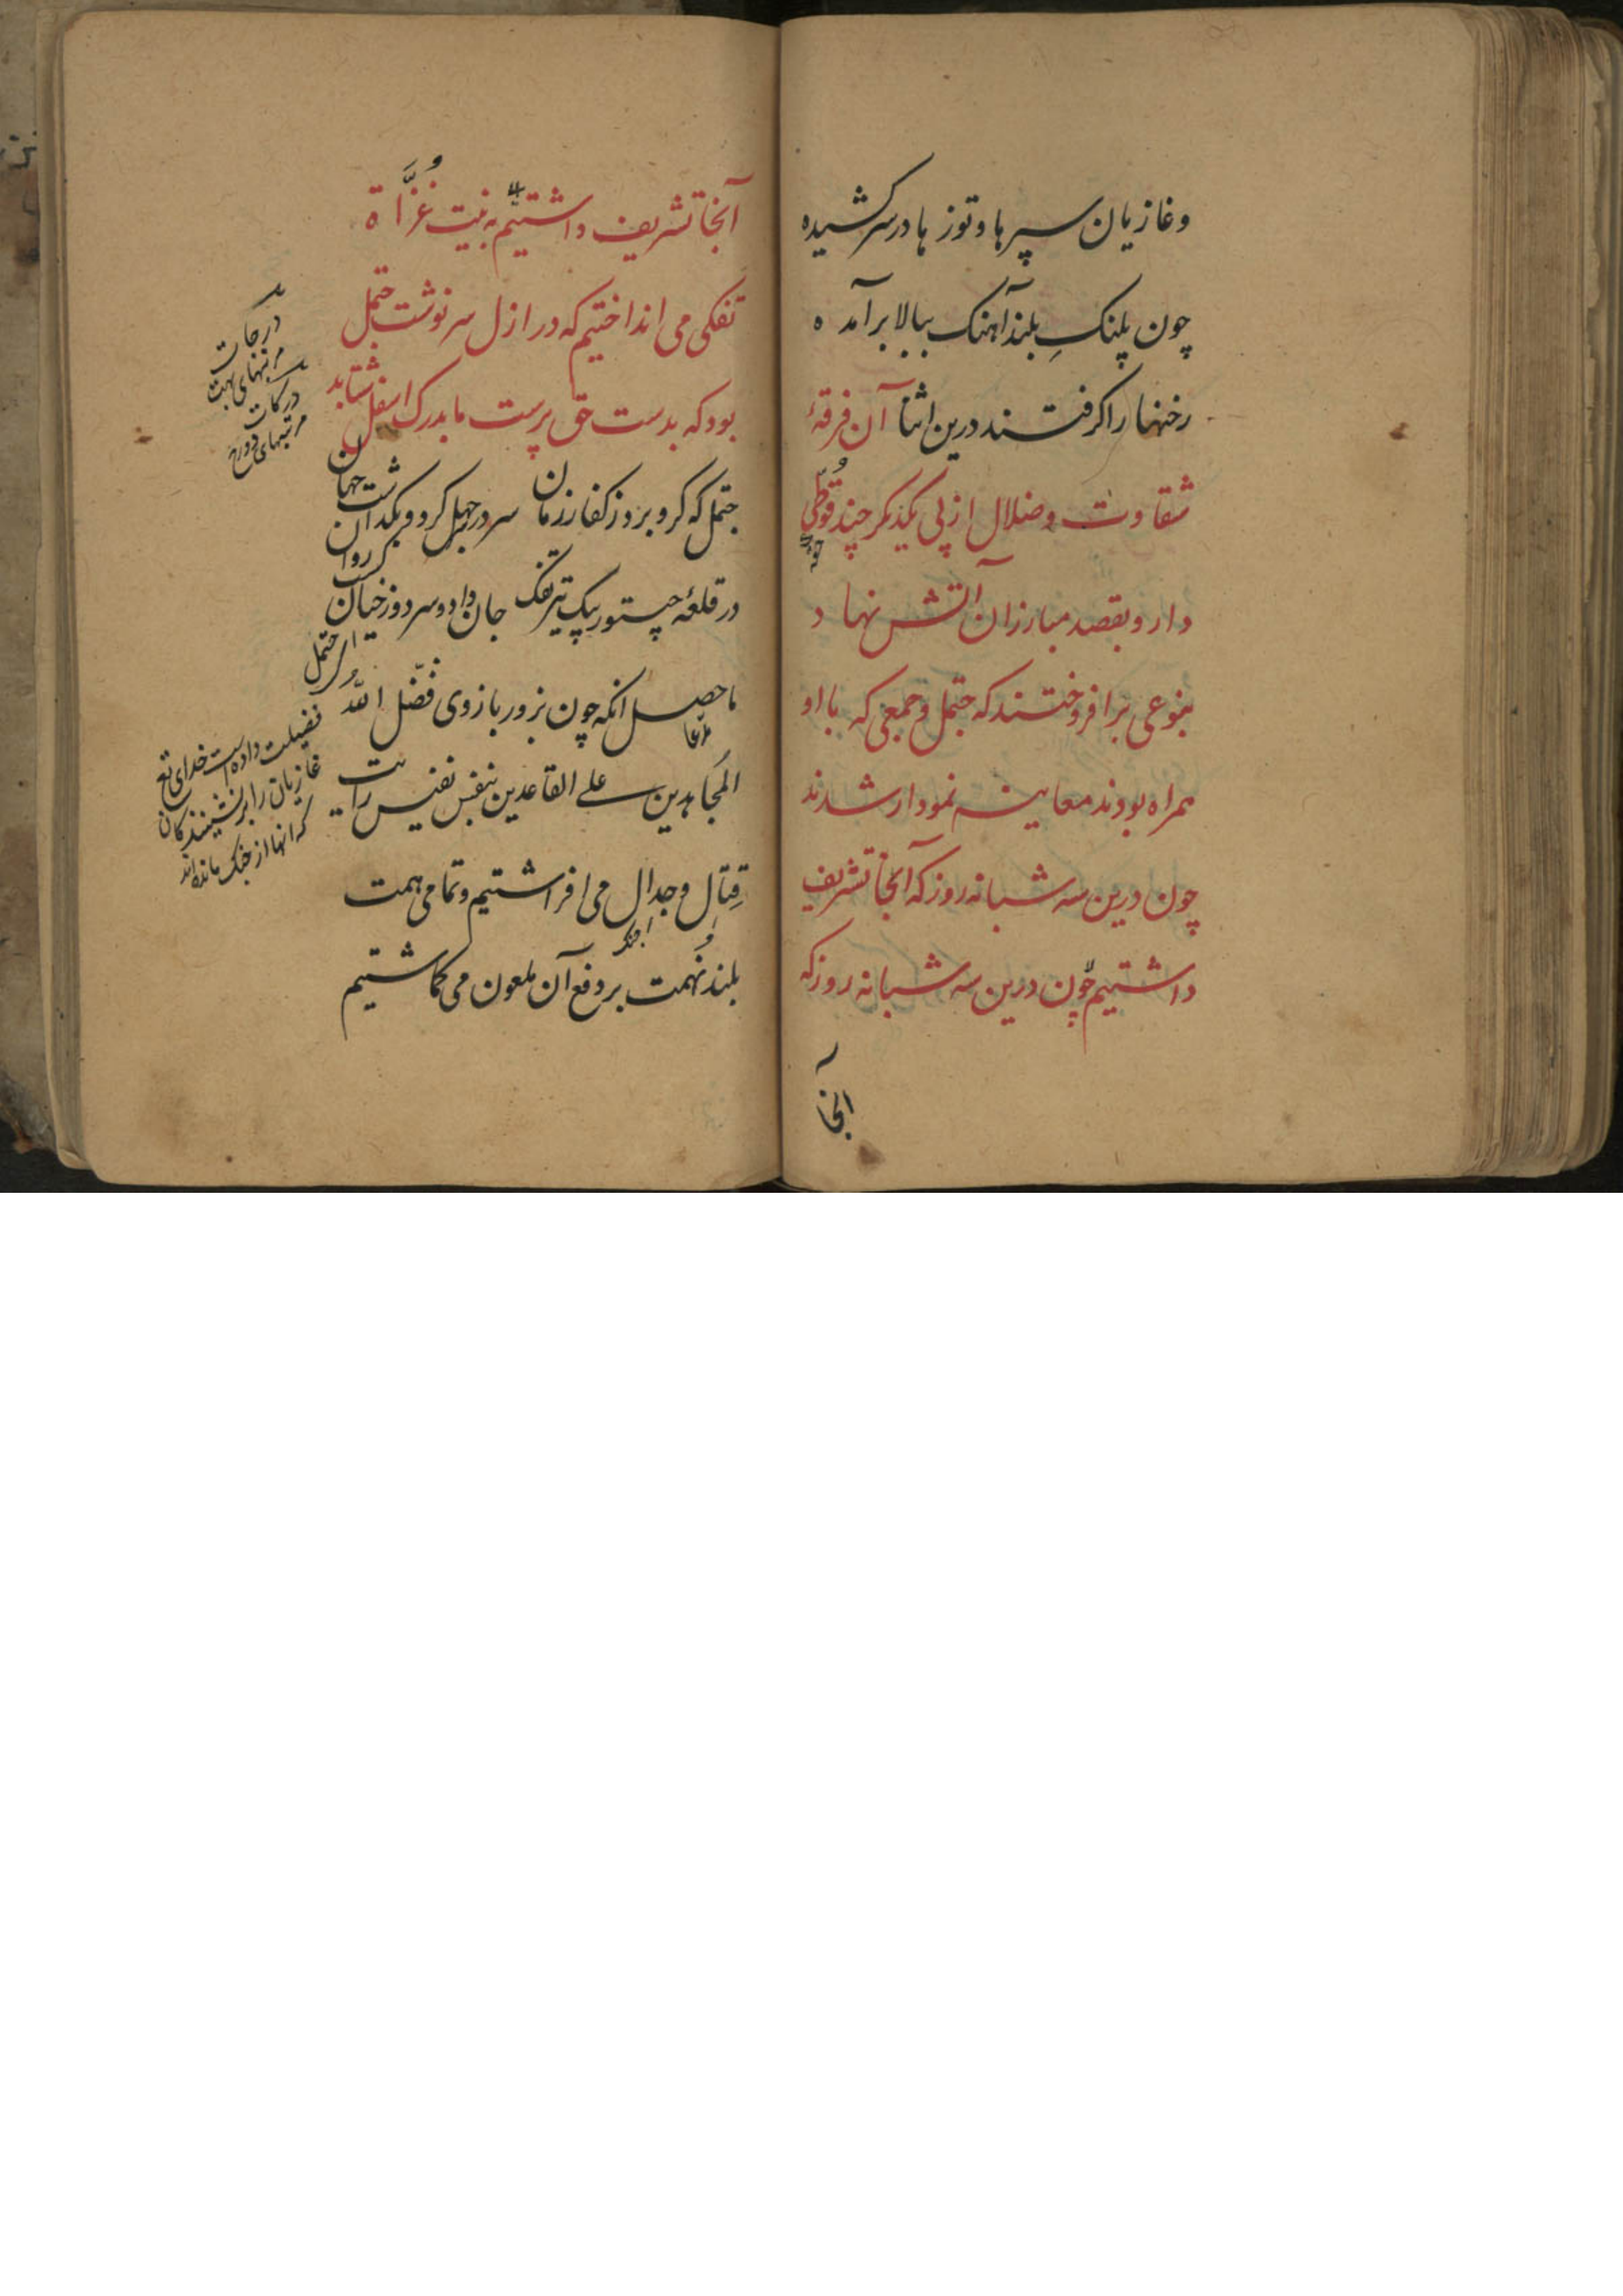 وغازیان سپرها وتوزها درسر کشیده
چون پلنکِ بلندآهنک ببالا برآمده
رخنها را کرفتند درین اثنا آن فرقهٔ
شقاوت وضلال از پی یکدیکر چند قُوطّی
دارو بقصد مبارزان آتش نهاد
بنوعی برافروختند که جتمل وجمعی که بااو
همراه بودند معاینه نمودار شدند
چون درین سه شبانه روز که آنجا تشریف
داشتیم چون درین سه شبانه روز که
آنجا
آنجا تشریف داشتیم به نیت غُزَّاة
تفکی می انداختیم که در ازل سرنوشت جتمل
بود که بدست حق پرست ما بدرک اسفل شتابد
جتمل که کرو بروز کفار زمان
سر در جبل کرد وبکذاشت جهان
در قلعهٔ چیتور بیک تیر تفک
جان داد وسر دوزخیان کشت روان
ای جتمل
ماحصل انکه چون بزور بازوی فضّل الله
المجاهدین علی القاعدین بنفس نفیس رایت
قِتالِ وجدالِ می افراشتیم وتمامی همت
بلند نُهمت بر دفع آن ملعون می کماشتیم
درجات
مرتبهای بهشت
درکات
مرتبهای دوزخ
فضیلت داده است خدای تع
غازیان را برنشینندکان
که انها از جنک مانده اند